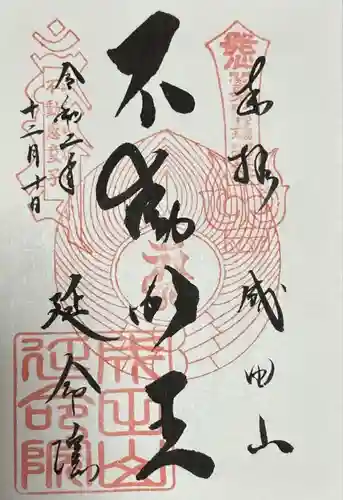 奉拝
成田山
不動明王
令和二年
十二月十日
延命院
成田山
延命院